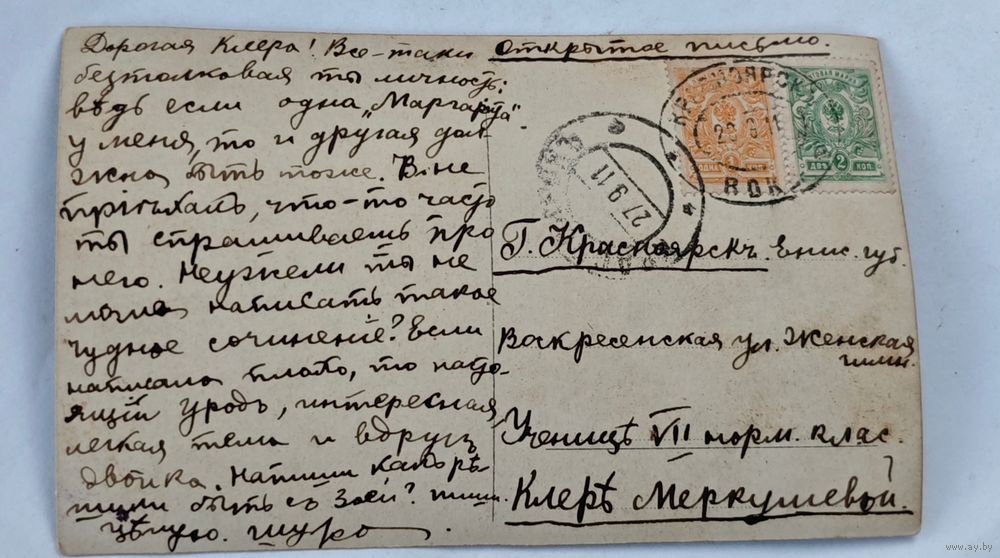 Дорогая Клера! Все-таки
безтолковая ты личность:
вѣдь если одна „Маргарита"
у меня, то и другая дол-
жна быть тоже. В. не
пріѣхалъ, что-то часто
ты спрашиваешь про
него. Неужели ты не
могла написать такое
чудное сочиненіе? Если
написала плохо, то насто-
ящій уродъ, интересная
легкая тема и вдругъ
двойка. Напиши какъ рѣ-
шили быть съ Зоей? Пиши.
Цѣлую. Шура.
Открытое письмо.
КРАСНОЯРСК
ВОКЗ
27 9 11
ОДНА 1 КОП.
ПОЧТОВАЯ МАРКА
ДВѢ 2 КОП.
Г. Красноярскъ. Енис. губ.
Воскресенская ул. Женская
гимн.
Ученицѣ VII норм. клас.
Клерѣ Меркушевой.
www.ay.by